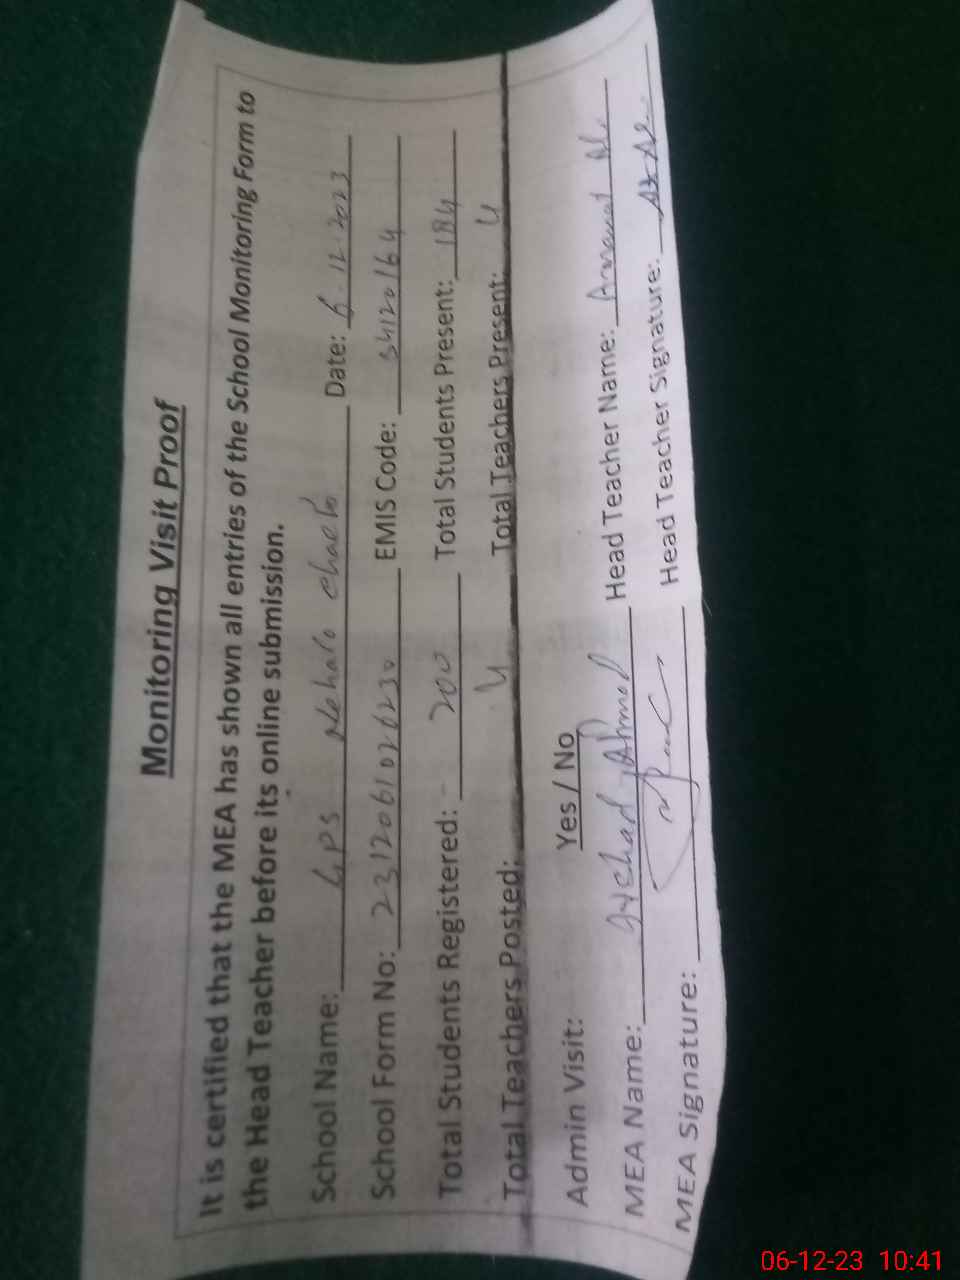 Monitoring Visit Proof
It is certified that the MEA has shown all entries of the School Monitoring Form to
the Head Teacher before its online submission.
School Name: GPS chack Date: 6.12.2023
School Form No: 2312061026230 EMIS Code: 34120164
Total Students Registered: 200 Total Students Present: 184
Total Teachers Posted: 4 Total Teachers Present: 4
Admin Visit: Yes / No
MEA Name: Ahmad Head Teacher Name: Amanat Ali
MEA Signature: Head Teacher Signature:
06-12-23 10:41